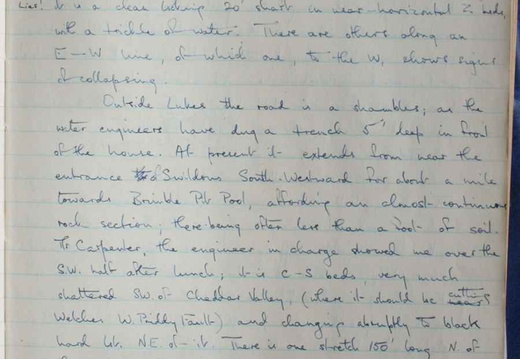 Lias! It is a clean looking 20' shaft in near-horizontal Z beds,
with a trickle of water. There are others along an
E-W line, of which one, to the W, shows signs
of collapsing.
Outside Lukes the road is a shambles, as the
water engineers have dug a trench 5' deep in front
of the house. At present it extends from near the
entrance to Swildons South-Westward for about a mile
towards Brimble Pit Pool, affording an almost continuous
rock section, there being often less than a foot of soil.
Mr Carpenter, the engineer in charge showed me over the
S.W. half after lunch; it is C-S beds, very much
shattered SW. of Cheddar Valley, (where it should be cutting
Welches W. Priddy Fault) and changing abruptly to black
hard lst. NE of it. There is one stretch 150' long N of